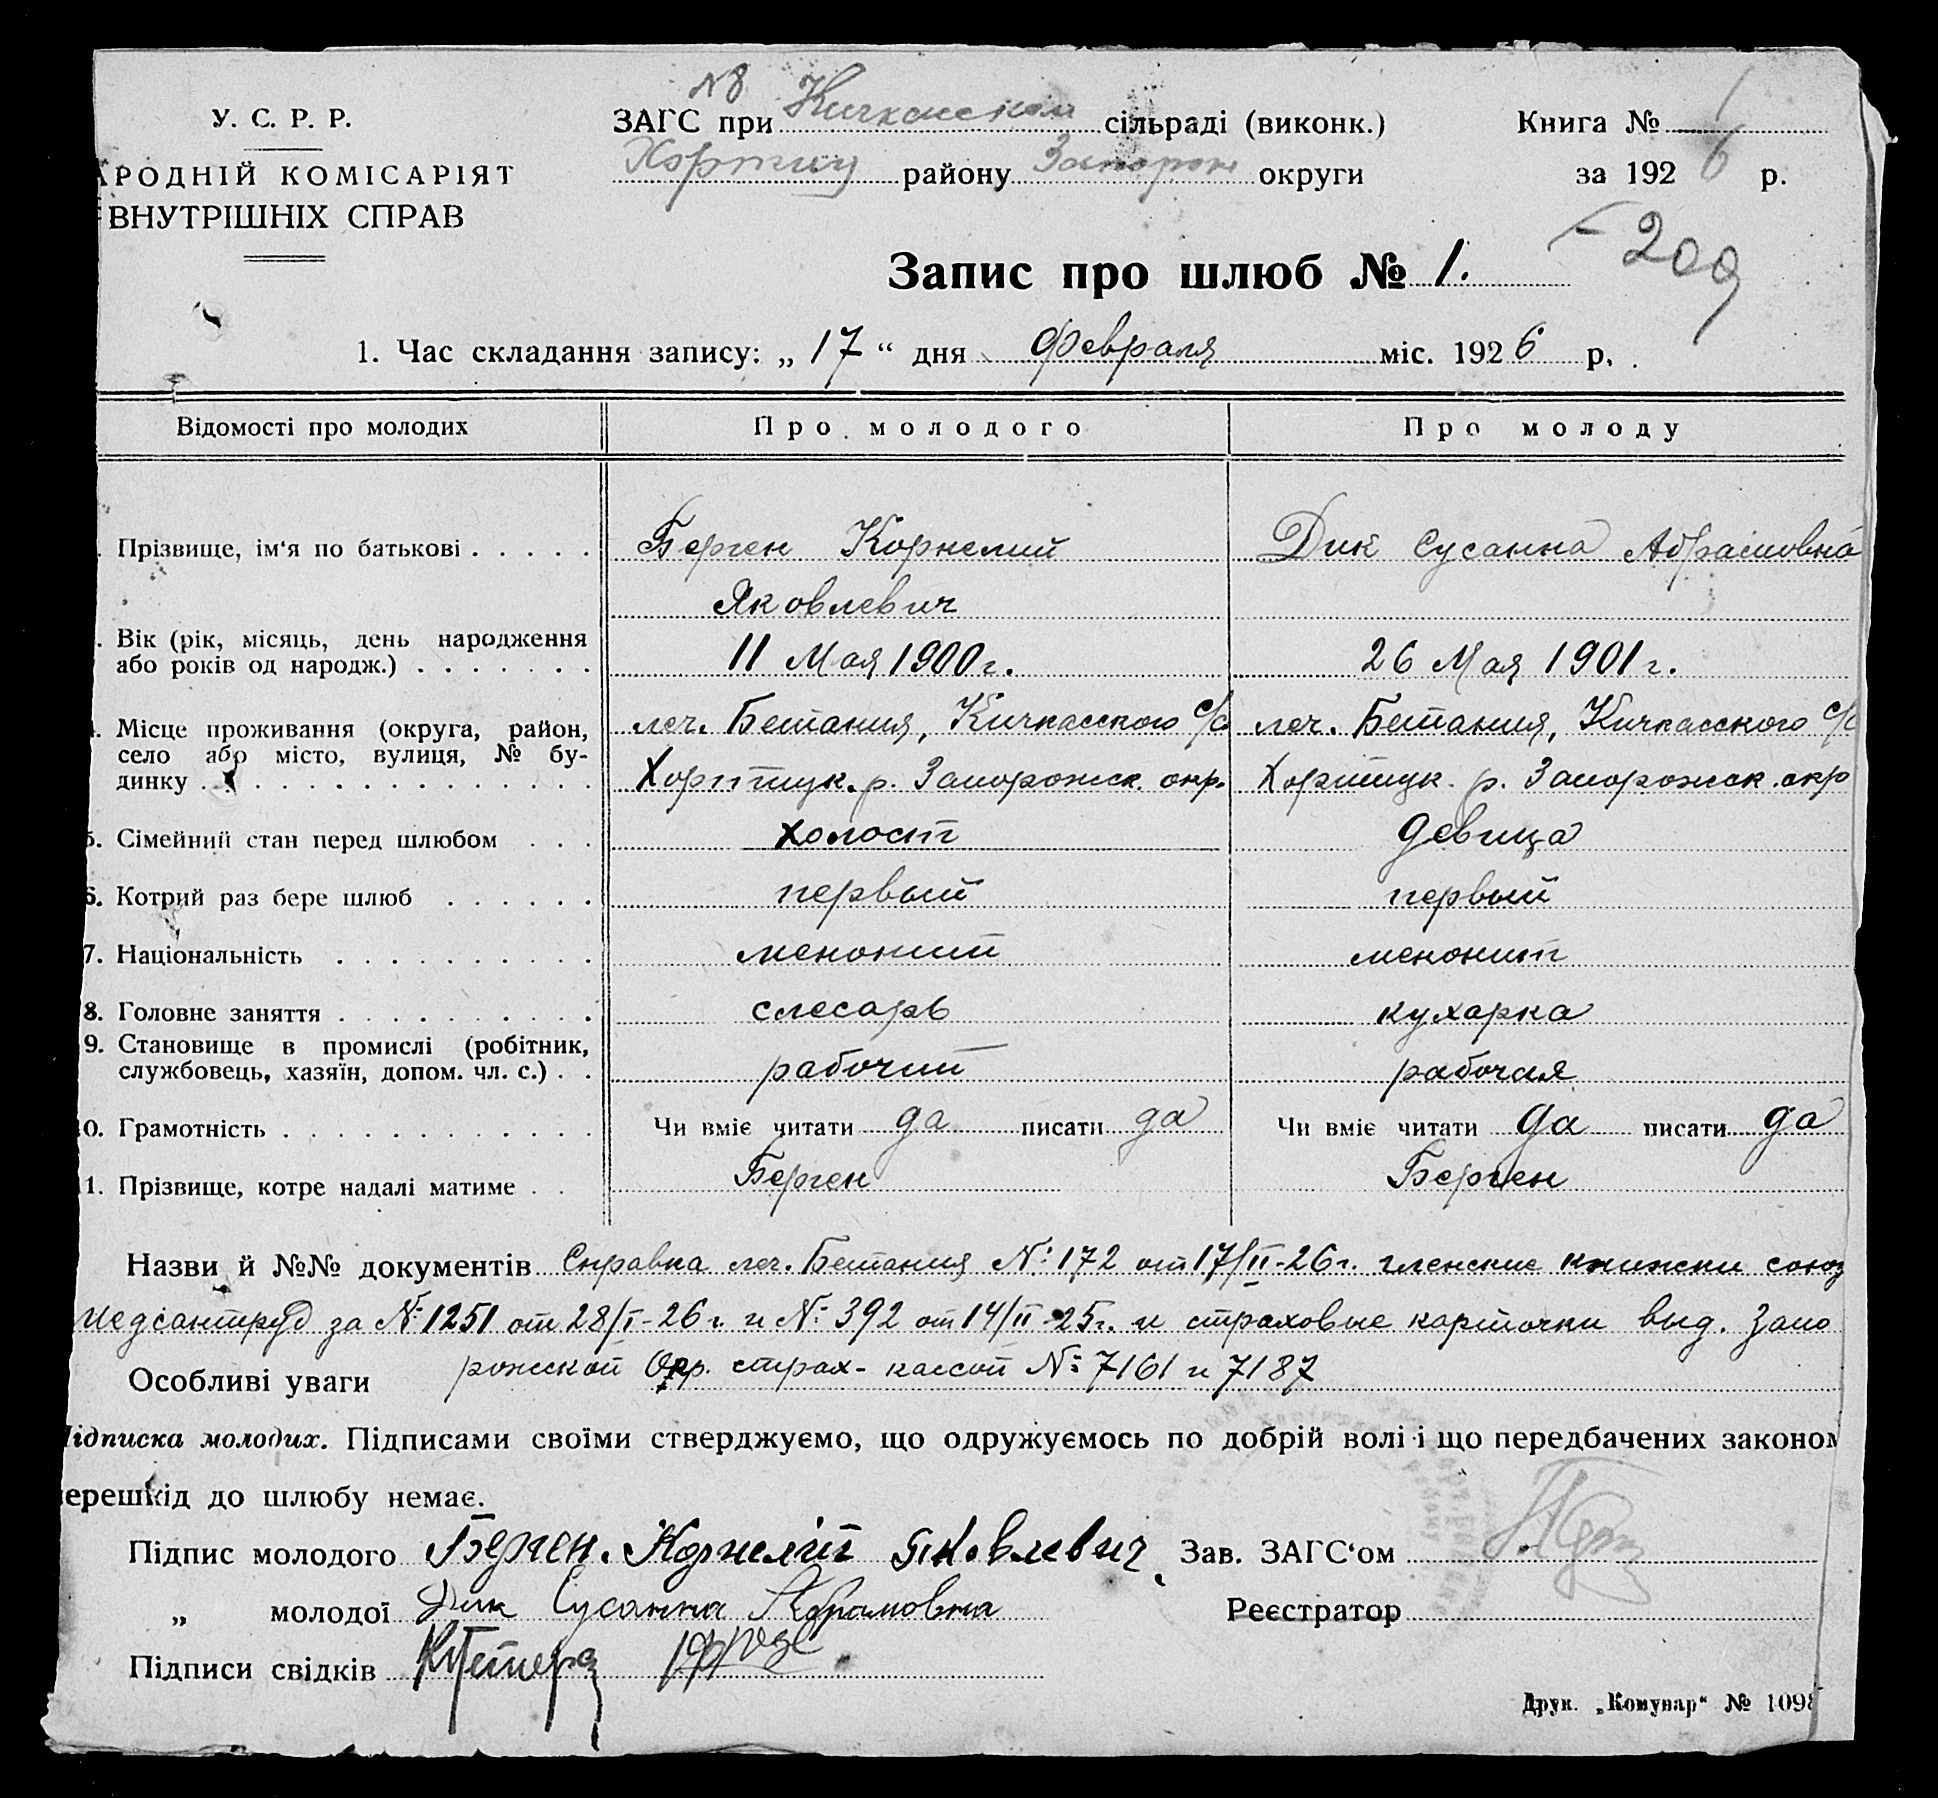 № 8
У. С. Р. Р. ЗАГС при Кичкасском сільраді (виконк.) Книга № 1
РОДНІЙ КОМІСАРІЯТ Хортиц району Запорож округи за 1926 р.
ВНУТРІШНІХ СПРАВ
Запис про шлюб № 1.
1. Час складання запису: „ 17 “ дня Февраля міс. 1926 р.
Відомості про молодих Про молодого Про молоду
Прізвище, ім'я по батькові . . . . . Берген Корнелий Дик Сусанна Абрамовна
Яковлевич
Вік (рік, місяць, день народження
або років од народж.) . . . . . . . 11 Мая 1900 г. 26 Мая 1901 г.
Місце проживання (округа, район, леч. Бетания, Кичкасского с/с леч. Бетания, Кичкасского с/с
село або місто, вулиця, № бу-
динку . . . . . . . . . . . . . . Хортицк. р. Запорожск. окр. Хортицк. р. Запорожск. окр
5. Сімейний стан перед шлюбом . . . холост девица
6. Котрий раз бере шлюб . . . . . . первый первый
7. Національність . . . . . . . . . . менонит менонит
8. Головне заняття . . . . . . . . . . слесарь кухарка
9. Становище в промислі (робітник,
службовець, хазяїн, допом. чл. с.) . . рабочий рабочая
0. Грамотність . . . . . . . . . . . . . Чи вміє читати да писати да Чи вміє читати да писати да
1. Прізвище, котре надалі матиме . . Берген Берген
Назви й №№ документів Справка леч. Бетания №: 172 от 17/II-26 г. членские книжки союз
медсантруд за №: 1251 от 28/I-26 г. и №: 392 от 14/II-25 г. и страховые карточки выд. Запо
Особливі уваги рожской Окр. страх-кассой №: 7161 и 7187
ідписка молодих. Підписами своїми стверджуємо, що одружуємось по добрій волі і що передбачених законом
ерешкід до шлюбу немає.
Підпис молодого Берген. Корнелій Яковлевич Зав. ЗАГС‘ом
„ молодої Дик Сусанна Абрамовна Реєстратор
Підписи свідків
Друк. „Комунар“ № 1098